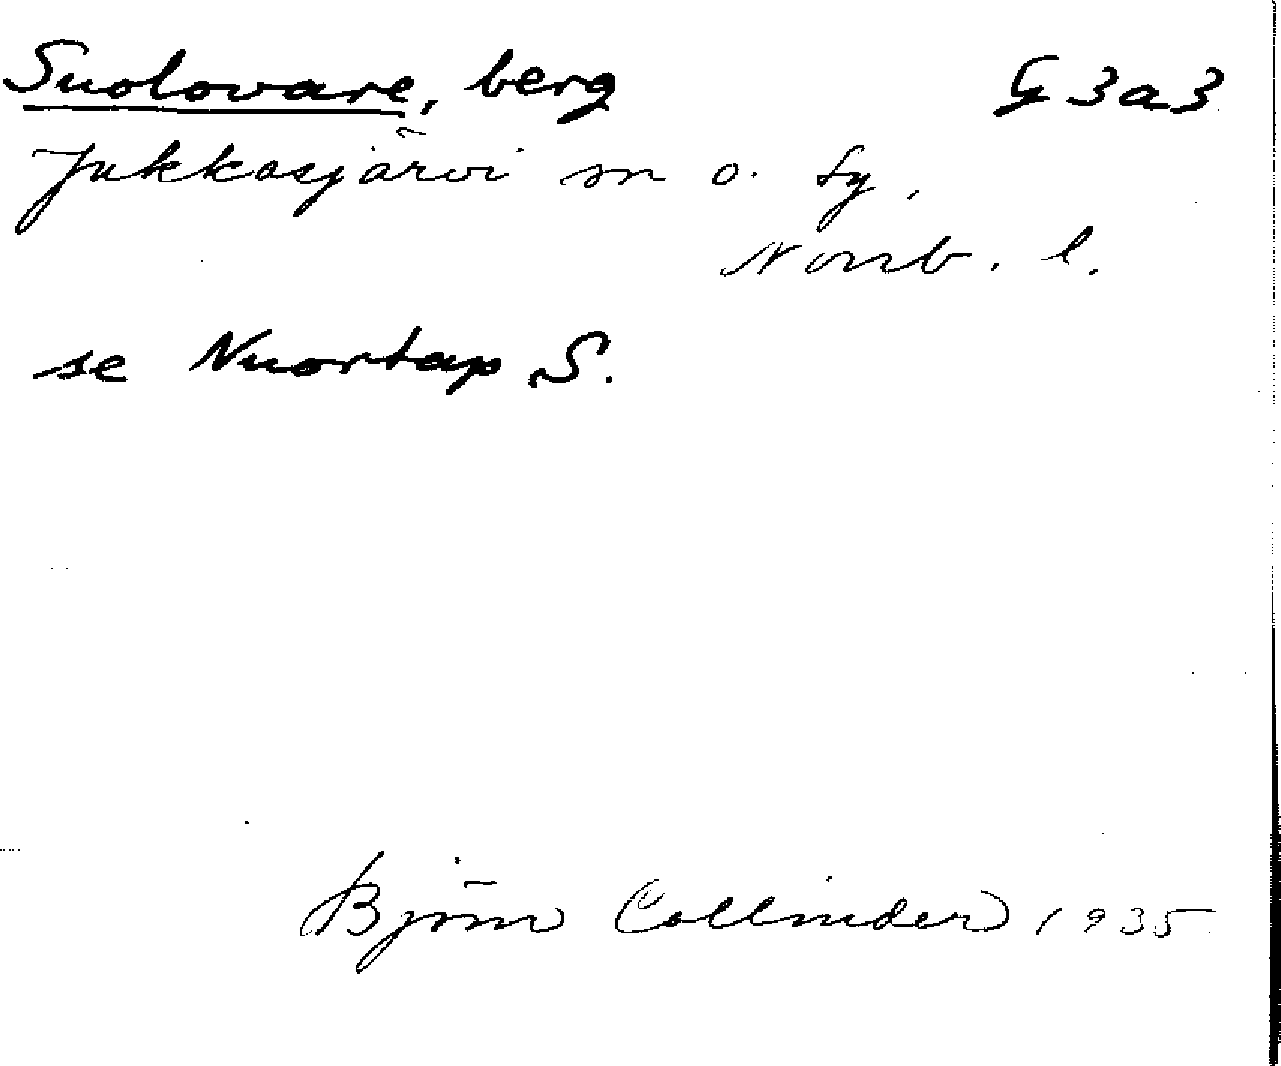 Suolovare, berg G3a3
Jukkasjärvi sn o. ty,
Norrb. l.
se Nuortap S.
Björn Collinder 1935